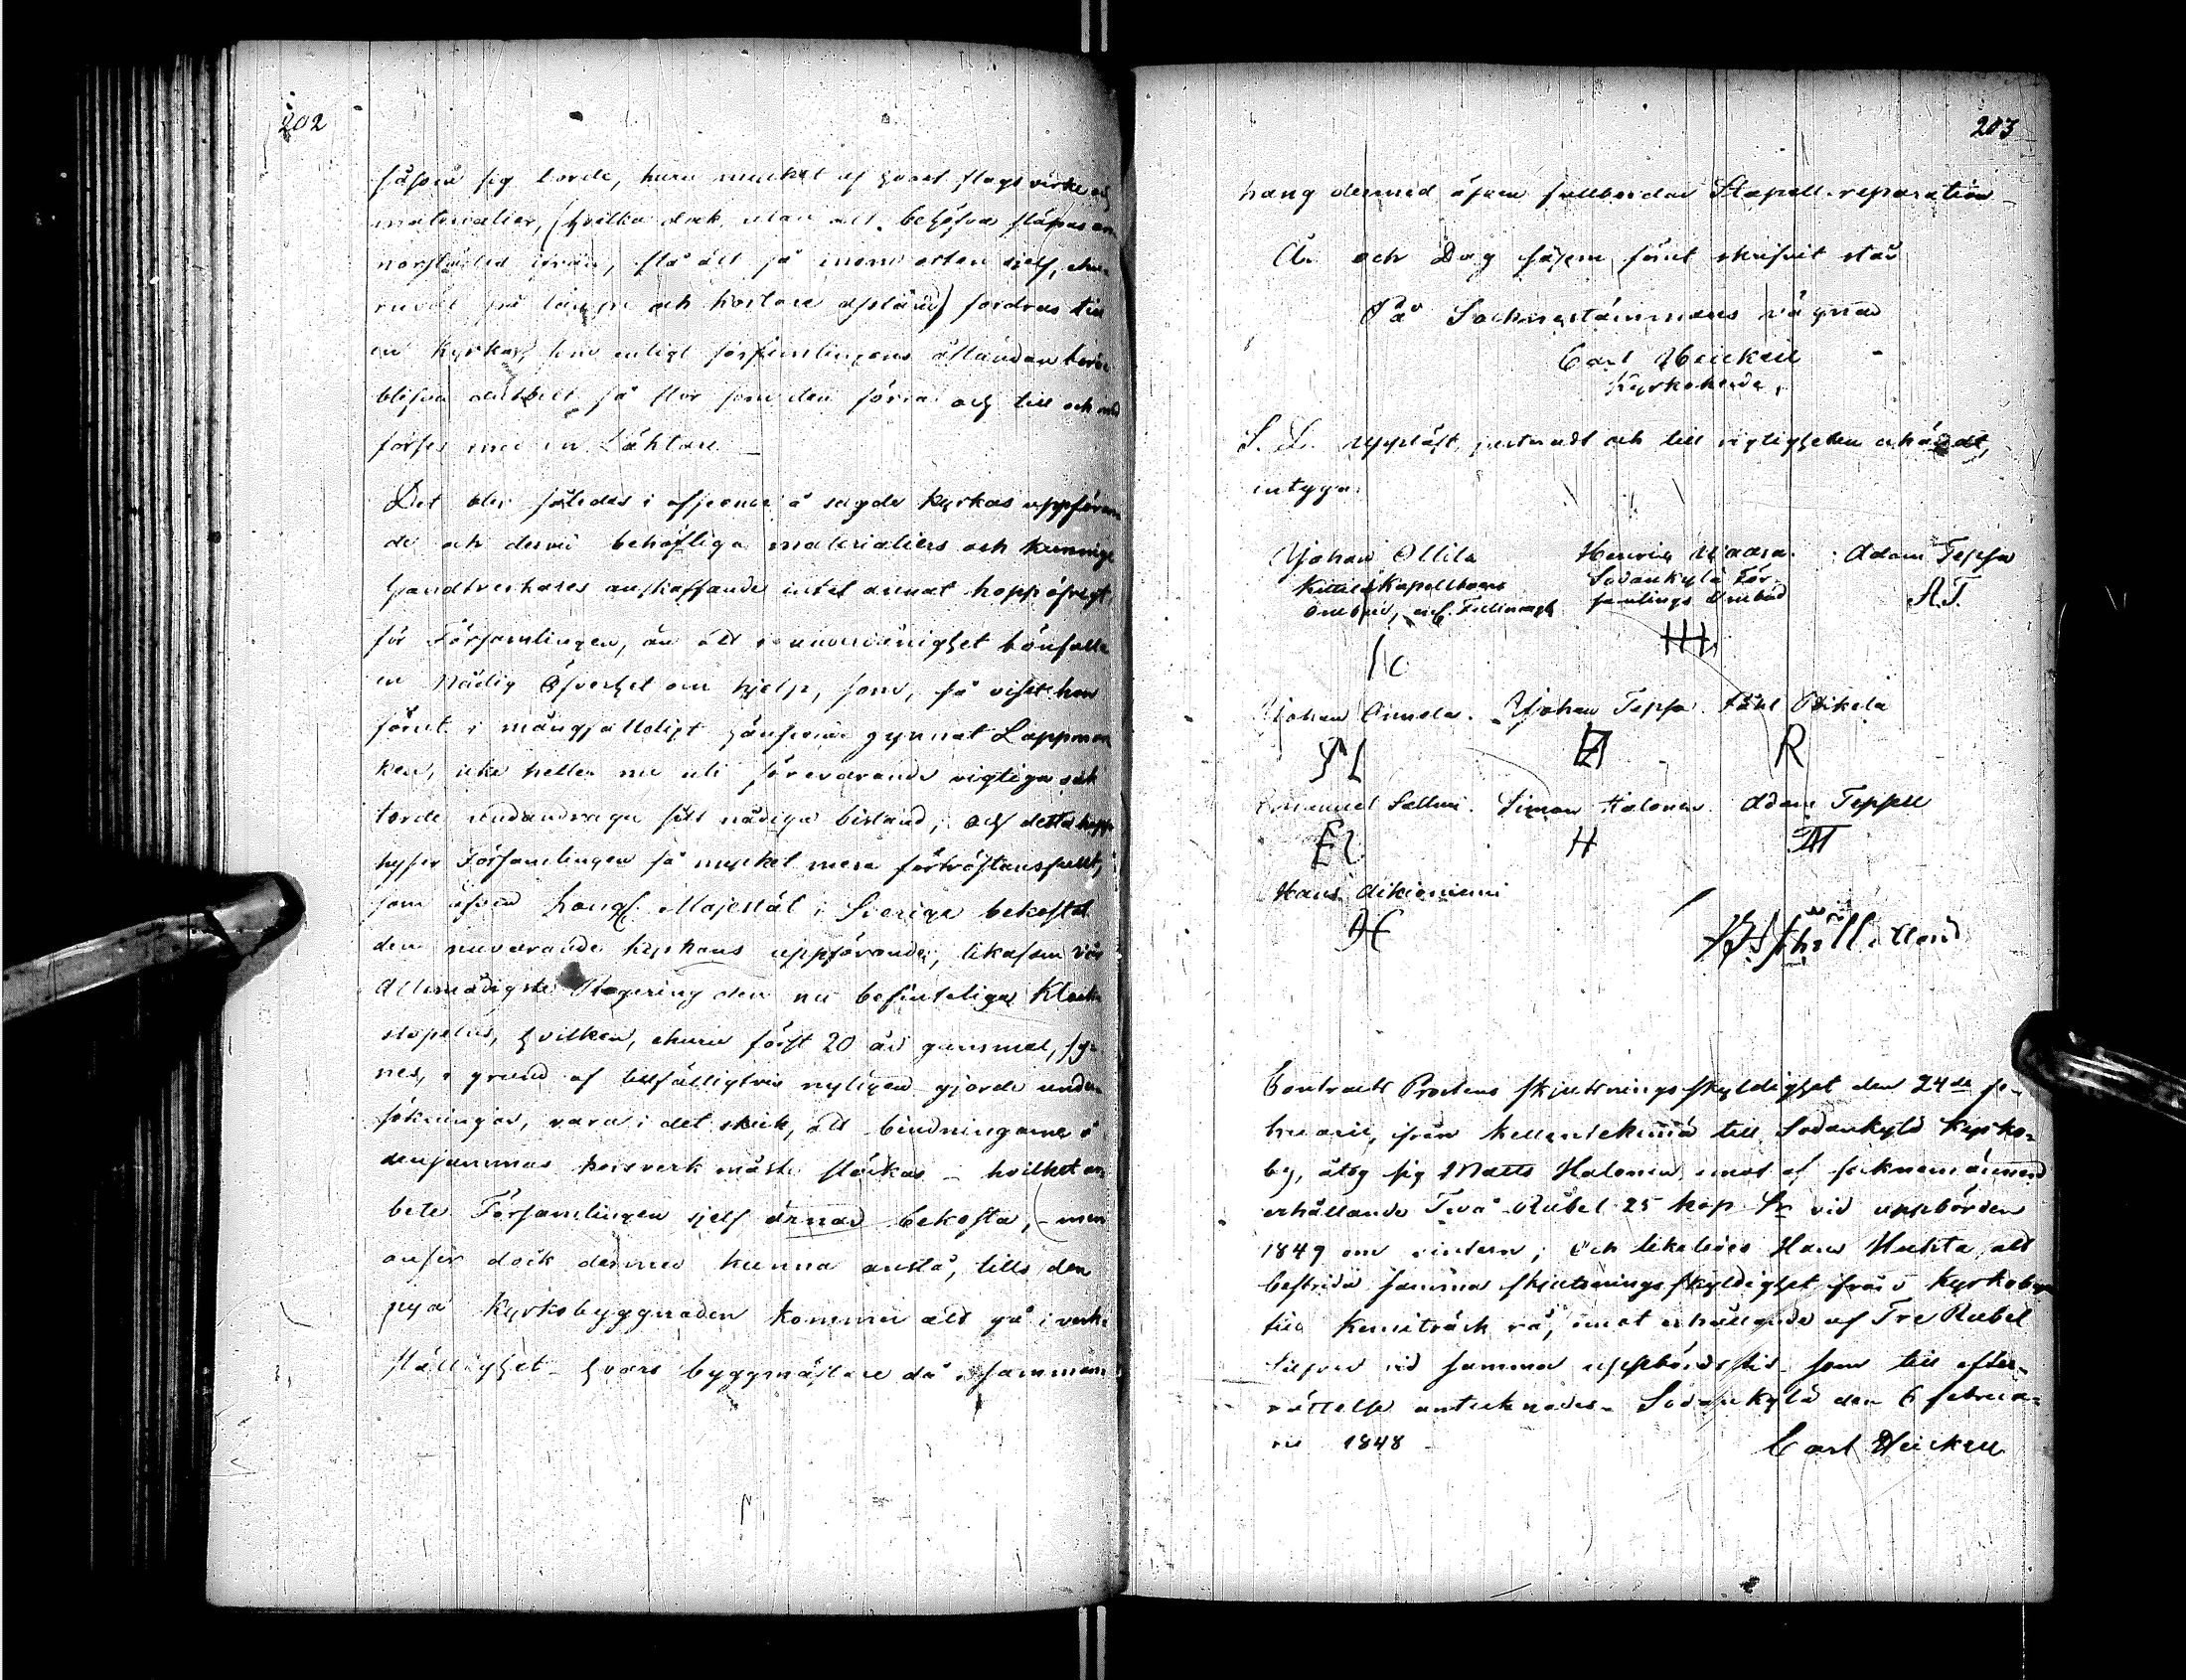 202
såsom sig borde, huru mycket af hvart slags virke och
materialier, (hvilka dock, utan att behöfva släpas an-
norstädes ifrån, stå att få inom orten sjelf, ehu-
ruväl på längre och kortare afstånd) fordras till
en Kyrka, som enligt församlingens åstundan borde
blifva dubbelt så stor som den förra och till och med
förses med en Läktare –
Det blir således i afseende å sagde Kyrkas uppföran-
de och dervid behöfliga materialiers och kunnige
handtverkares anskaffande intet annat hopp öfrigt
för Församlingen, än att i underdånighet bönfalla
en Nådig Öfverhet om hjelp, som, så visst hon
förut i mångfaldigt hänseende gynnat Lappmar-
ken, icke heller nu uti förevarande vigtiga sak
torde undandraga sitt nådiga bistånd; och detta hopp
hyser Församlingen så mycket mera förtröstansfullt,
som äfven Kongl. Majestät i Sverige bekostat
den nuvarande kyrkans uppförande, likasom vår
Allernådigste Regering den nu befinteliga Klock-
stapelns, hvilken, ehuru först 20 år gammal, sy-
nes, i grund af tillfälligtvis nyligen gjorde under-
sökningar, vara i det skick, att bindningarne i
densammas korsverk måste stärkas – hvilket ar-
bete Församlingen sjelf ärnar bekosta, – men
anser dock dermed kunna anstå, tills den
nya Kyrkobyggnaden kommer att gå i verk-
ställighet – hvars byggmästare då i samman-
203
hang dermed äfven fullbordar Stapell-reparation –
År och Dag såsom förut skrifvit står
På Socknestämmans vägnar
Carl Heickell
Kyrkoherde.
S. D. Uppläst, justeradt och till rigtigheten erkändt,
intyga:
Johan Ollila Henrik Adam Teppa
Kittilä Kapellboers Sodankylä För-
ombud, församlings Ombud A.T.
Johan Johan Teppa
R
Emanuel Simon Halonen Adam Teppell
H
Hans Aikioniemi
Contracts Prostens skjutsningsskyldighet den 24de fe-
bruarii, ifrån till Sodankylä Kyrko-
by, åtog sig Matts Halonen emot af socknemännerne
erhållande Två Rubel 25 kop Sr vid uppbörden
1849 om vintern; och likaledes Hans Huhta att
bestrida samma skjutsningsskyldighet från Kyrkobyn
till Kemiträsk rå, emot erhållande af Tre Rubel
Silfver vid samma uppbördstid – som till efter-
rättelse antecknades – Sodankylä den 6 februa-
rii 1848 – Carl Heickell